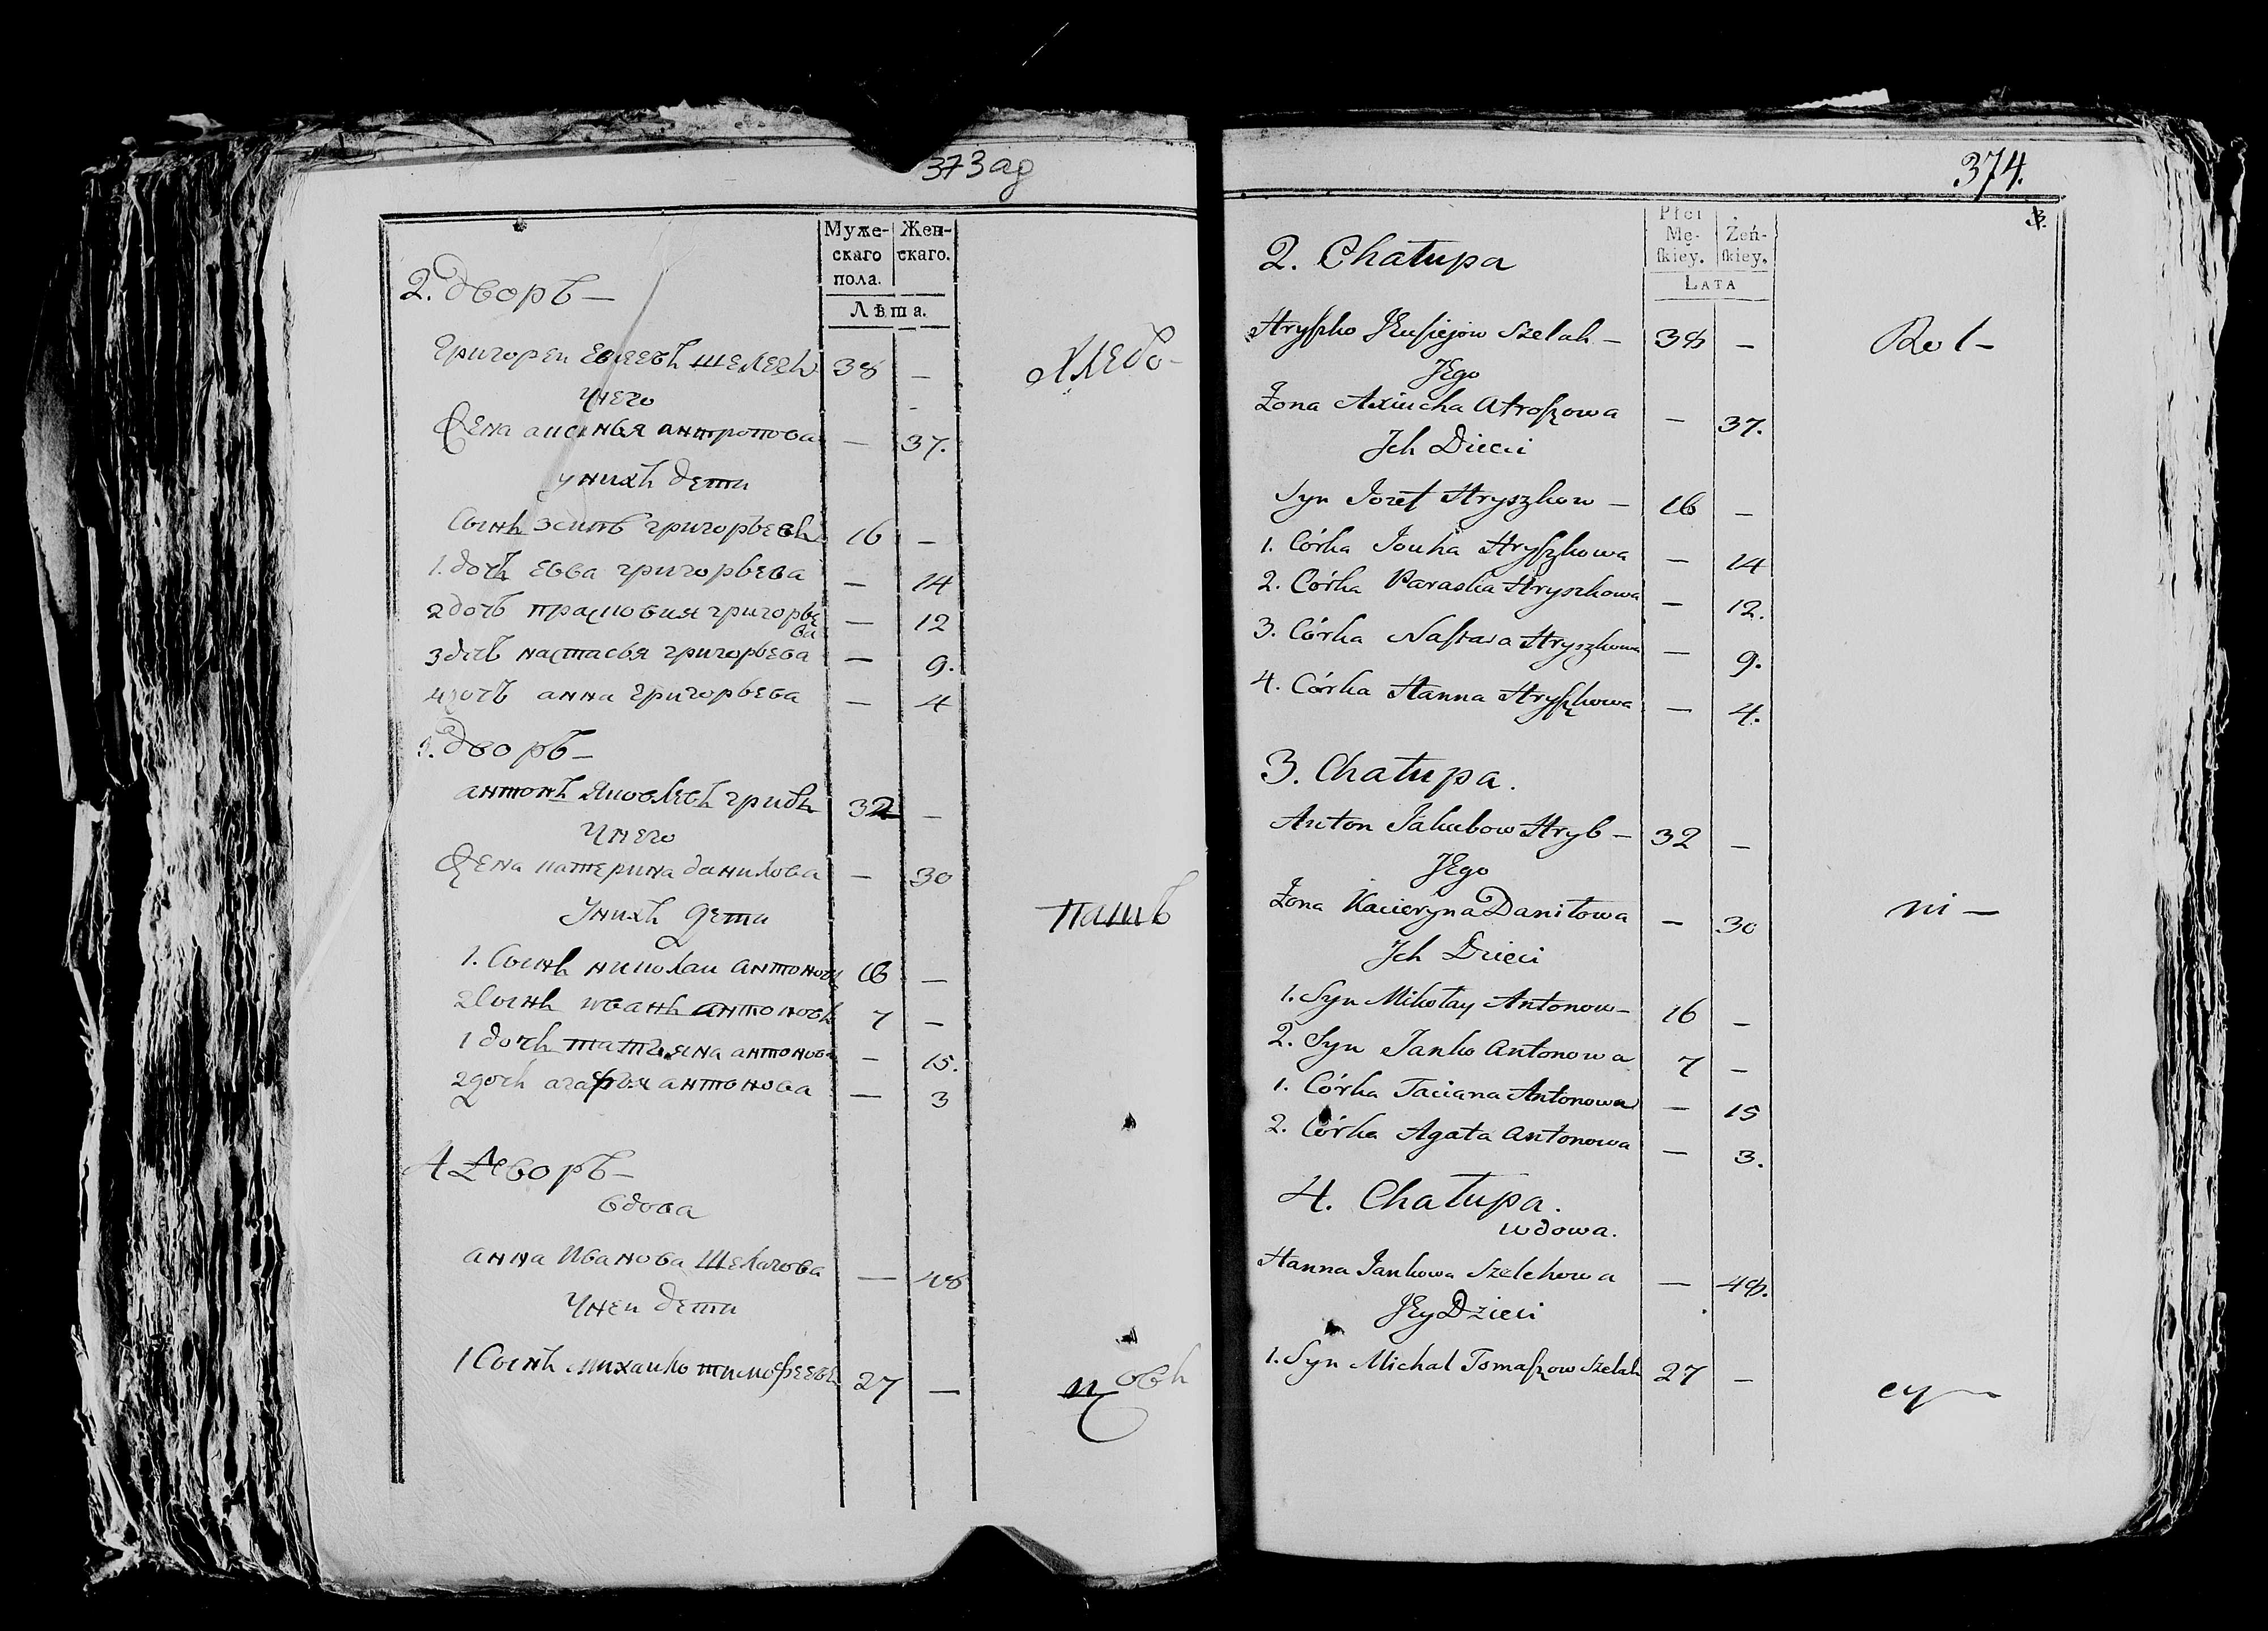 373 ag
Муже-
скаго
пола.
Жен-
скаго.
Лѣта.
2. дворъ —
Григореи Евсеевъ шелегъ 38 —
унего
Жена аисинья антропова — 37.
унихъ дети
Сынъ эсипъ григорьевъ 16 —
1. дочъ евва григорьева — 14
2 дочъ прасковия григорье
ва — 12
3 дочъ настасья григорьева — 9.
4 дочъ анна григорьева — 4
3. дворъ —
антонъ Яковлевъ грибъ 32 —
унего
Жена катерина данилова — 30
унихъ дети
1. Сынъ николаи антоновъ 16 —
2 Сынъ иванъ антоновъ 7 —
1 дочъ татьяна антонова — 15.
2 дочъ агафья антонова — 3
4 дворъ —
вдова
анна Иванова Шелегова — 48
унеи дети
1 Сынъ михаико тимофеевъ 27 —
хлебо-
паш
цовъ
374.
Płci
Mę-
skiey.
Żeń-
skiey.
LATA
2. Chałupa
Hryszko JEusiejow Szelah — 38 —
JEgo
Żona Axiucha Atroszowa — 37.
Jch Dzieci
Syn Jozef Hryszkow — 16 —
1. Córka Jouha Hryszkowa — 14
2. Córka Paraska Hryszkowa — 12.
3. Córka Nastasia Hryszkowa — 9.
4. Córka Hanna Hryszkowa — 4.
3. Chałupa.
Anton Jakubow Hryb — 32 —
JEgo
Żona Kacieryna Daniłowa — 30
Jch Dzieci
1. Syn Mikołay Antonow — 16 —
2. Syn Janko Antonowa 7 —
1. Córka Taciana Antonowa — 15
2. Córka Agata Antonowa — 3.
4. Chałupa.
wdowa.
Hanna Jankowa Szelehowa — 48.
JEy Dzieci
1. Syn Michał Tomaszow Szelah 27 —
Rol —
ni —
cy —